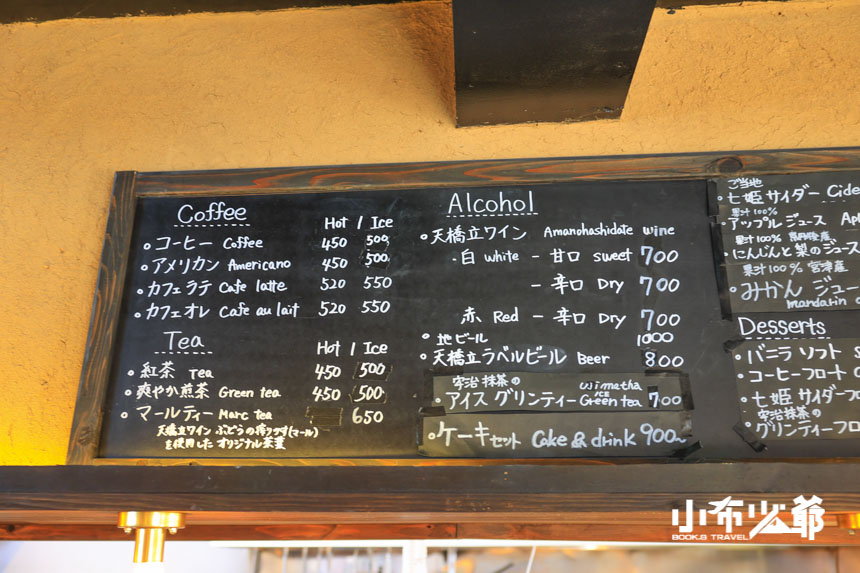 Coffee
Hot / Ice
コーヒー Coffee 450 500
アメリカン Americano 450 500
カフェラテ Cafe latte 520 550
カフェオレ Cafe au lait 520 550
Tea
Hot / Ice
紅茶 Tea 450 500
爽やか煎茶 Green tea 450 500
マールティー Marc tea 650
天橋立ワイン ぶどうの搾りカス(マール)
を使用した オリジナル茶葉
Alcohol
天橋立ワイン Amanohashidate wine
・白 white - 甘口 sweet 700
- 辛口 Dry 700
赤 Red - 辛口 Dry 700
地ビール 1000
天橋立ラベルビール Beer 800
宇治抹茶の Ujimatcha
アイス グリンティー ICE Green tea 700
ケーキセット Cake & drink 900~
ご当地
七姫サイダー Cide
果汁100%
アップルジュース Ap
果汁100%
にんじんと梨のジュース
果汁100% 宮津産
みかん ジュー
mandarin
Desserts
バニラ ソフト
コーヒーフロート
七姫サイダーフ
宇治抹茶の
グリンティーフロ
小布少爺
BOOK.S TRAVEL